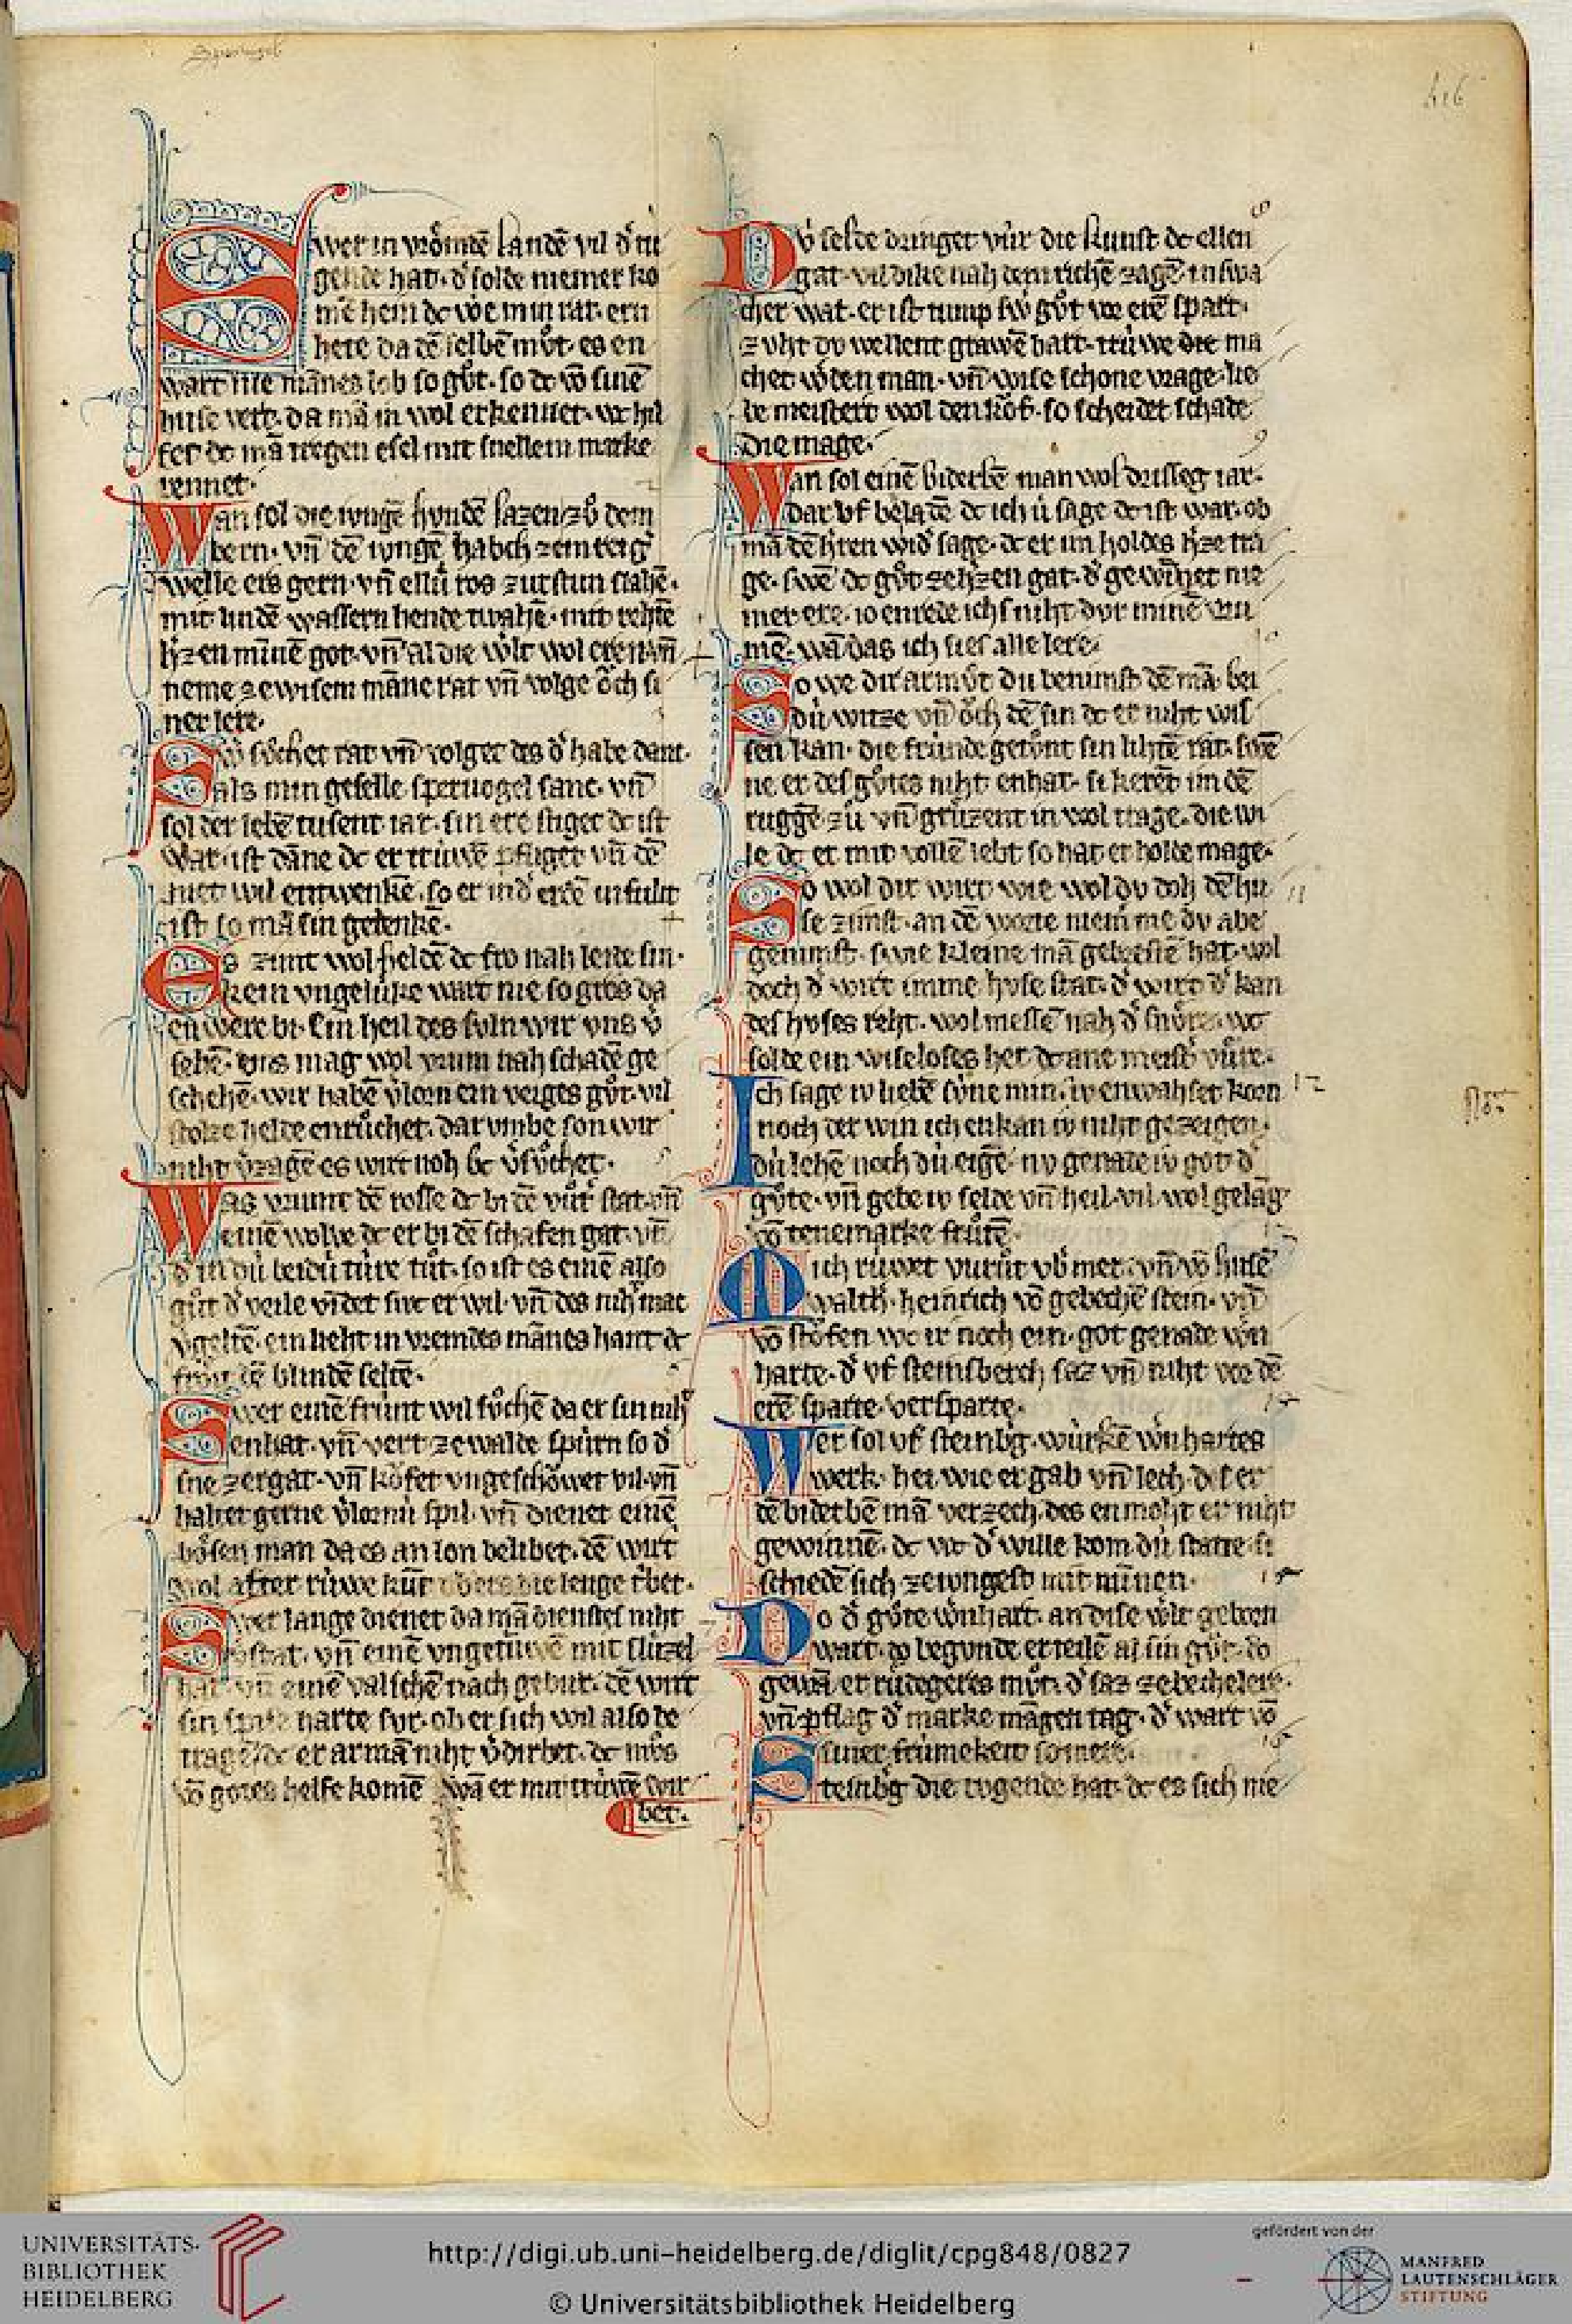 Spervogel
416
Swer in vrömdē landē vil d᾽ tu
gende hat. d᾽ solde niemer ko
mē hein dc wē min rat. ern
hete da dē selbē mͦvt. es en
wart nie mānes lob so gͦvt. so dc vō sinē
huse vert. da mā in wol erkennet. wc hil
fet dc mā tregen esel mit snellem marke
rennet.
Man sol die ivngē hvndē lazen zͦv dem
bern. vn̄ dē ivngē habch zem reig᾽
welle ers gern. vn̄ ellú ros zur stun slahē.
mit lindē wassern hende twahē. mit rehtē
h᾽zen minnē got. vn̄ al die w᾽lt wol eren vn̄
neme ze wisem māne rat vn̄ volge ͦoch si
ner lere.
Sw᾽ sͦvchet rat vn̄ volget des d᾽ habe dank.
als min geselle spervogel sanc. vn̄
sol der lebē tusent iar. sin ere stiget dc ist
war. ist dāne dc er trúwē pfliget vn̄ dē
niet wil entwenkē. so er in d᾽ erdē erfulit
ist so mā sin gedenkē.
Es zimt wol heldē dc fro nah leide sin.
kein vngelúke wart nie so gros da
en were bi. ein heil des svln wir vns v᾽
sehē. vns mag wol vrum nah schadē ge
schehē. wir habē v᾽lorn ein veiges gͦvt. vil
stolze helde enrͦvchet. dar vmbe son wir
niht v᾽zagē es wirt noh bc v᾽sͦvchet.
Was vrumt dē rosse dc bi dē vͦvt᾽ stat. vn̄
einē wolve dc er bi dē schafen gat. vn̄
d᾽ in dú beidú túre tͦvt. so ist es einē also
gͦvt d᾽ veile vīdet swc er wil. vn̄ des niht mac
v᾽geltē. ein lieht in vremdes mānes hant dc
frͦvt dē blindē seltē.
Swer einē frúnt wil sͦvchē da er sin niht
enhat. vn̄ vert ze walde spúrn so d᾽
sne zergat. vn̄ kͦofet vngeschͦowet vil. vn̄
haltet gerne v᾽lornú spil. vn̄ dienet einē
bösen man da es an lon belibet. dē wirt
wol after rúwe kūt ob ers die lenge tribet.
Swer lange dienet da mā dienstes niht
v᾽stat. vn̄ einē vngetrúwē mit slúzel
hat. vn̄ einē valschē nachgebur. dē wirt
sin spise harte svr. ob er sich wil also be
tragē. dc er armā niht v᾽dirbet. dc mͦvs
vō gotes helfe komē wā er mit trúwē wir
bet.
8
Dv́ selde dringet vúr die kunst dc ellen
gat. vil dike nah dem richē zagē in swa
cher wat. er ist tump sw᾽ gͦvt vor erē spart.
zvht dv wellent grawē bart. trúwe die ma
chet w᾽den man. vn̄ wise schone vrage. lie
be meistert wol den kͦof. so scheidet schade
die mage.
9
Man sol einē biderbē man wol drisseg iar.
dar vf belāgē dc ich ú sage dc ist war. ob
mā dē h᾽ren wid᾽ sage. dc er im holdes h᾽ze tra
ge. swē dc gͦvt ze h᾽zen gat. d᾽ gewīnet nie
mer ere. io enrede ichs niht dvr minē vru
mē. wā das ich sies alle lere.
10
So we dir armͦvt du benimst dē mā. bei
dú witze vn̄ ͦoch dē sin dc er niht wis
sen kan. die frúnde getͦvnt sin lihtē rat. swē
ne er des gͦvtes niht enhat. si kerēt im dē
ruggē zͦv vn̄ grͦvzent in wol trage. die wi
le dc er mit vollē lebt so hat er holde mage.
11
So wol dir wirt wie wol dv doh dē hu
se zimst. an dē worte niem᾽ me dv abe
genimst. swie kleine mā gebrestē hat. wol
doch d᾽ wirt imme hvse stat. d᾽ wirt d᾽ kan
des hvses reht. wol messē nah d᾽ snͦvre. wc
solde ein wiseloses her dc ane meist᾽ vͦvre.
12
Ich sage iv liebē súne min. iv enwahset korn
noch der win ich enkan iv niht gezeigen.
dú lehē noch dú eigē. nv genade iv got d᾽
gͦvte. vn̄ gebe iv selde vn̄ heil. vil wol gelāg
vō tenemarke frͦvtē.
13
Mich rúwet vrut vb᾽ mer. vn̄ vō husē
walth᾽. heinrich vō gebechēstein. vn̄
vō stͦofen wc ir noch ein. got genade w᾽n
harte. d᾽ vf steinsberch saz vn̄ niht vor dē
erē sparte. versparte.
14
Wer sol vf steinb᾽g. wúrkē w᾽nhartes
werk. hei wie er gab vn̄ lech. des er
dē biderbē mā verzech. des enmoht er niht
gewinnē. dc wc d᾽ wille kom dú state si
schiedē sich ze ivngest mit minnen.
15
Do d᾽ gͦvte w᾽nhart. an dise w᾽lt geborn
wart. do begvnde er teilē al sin gͦvt. do
gewā er rúdegeres mͦvt. d᾽ saz ze bechelere.
vn̄ pflag d᾽ marke māgen tag. d᾽ wart vō
siner frúmekeit so mere.
16
Steinb᾽g die tvgende hat. dc es sich nie
UNIVERSITÄTS-
BIBLIOTHEK
HEIDELBERG
http://digi.ub.uni-heidelberg.de/diglit/cpg848/0827
© Universitätsbibliothek Heidelberg
gefördert von der
MANFRED
LAUTENSCHLÄGER
STIFTUNG